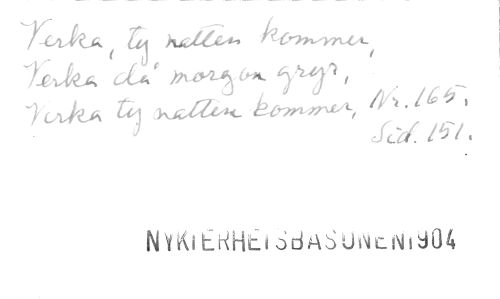 Verka, ty natten kommer,
Verka då morgon gryr,
Verka ty natten kommer, Nr. 165.
Sid. 151.
NYKTERHETSBASUNEN 1904